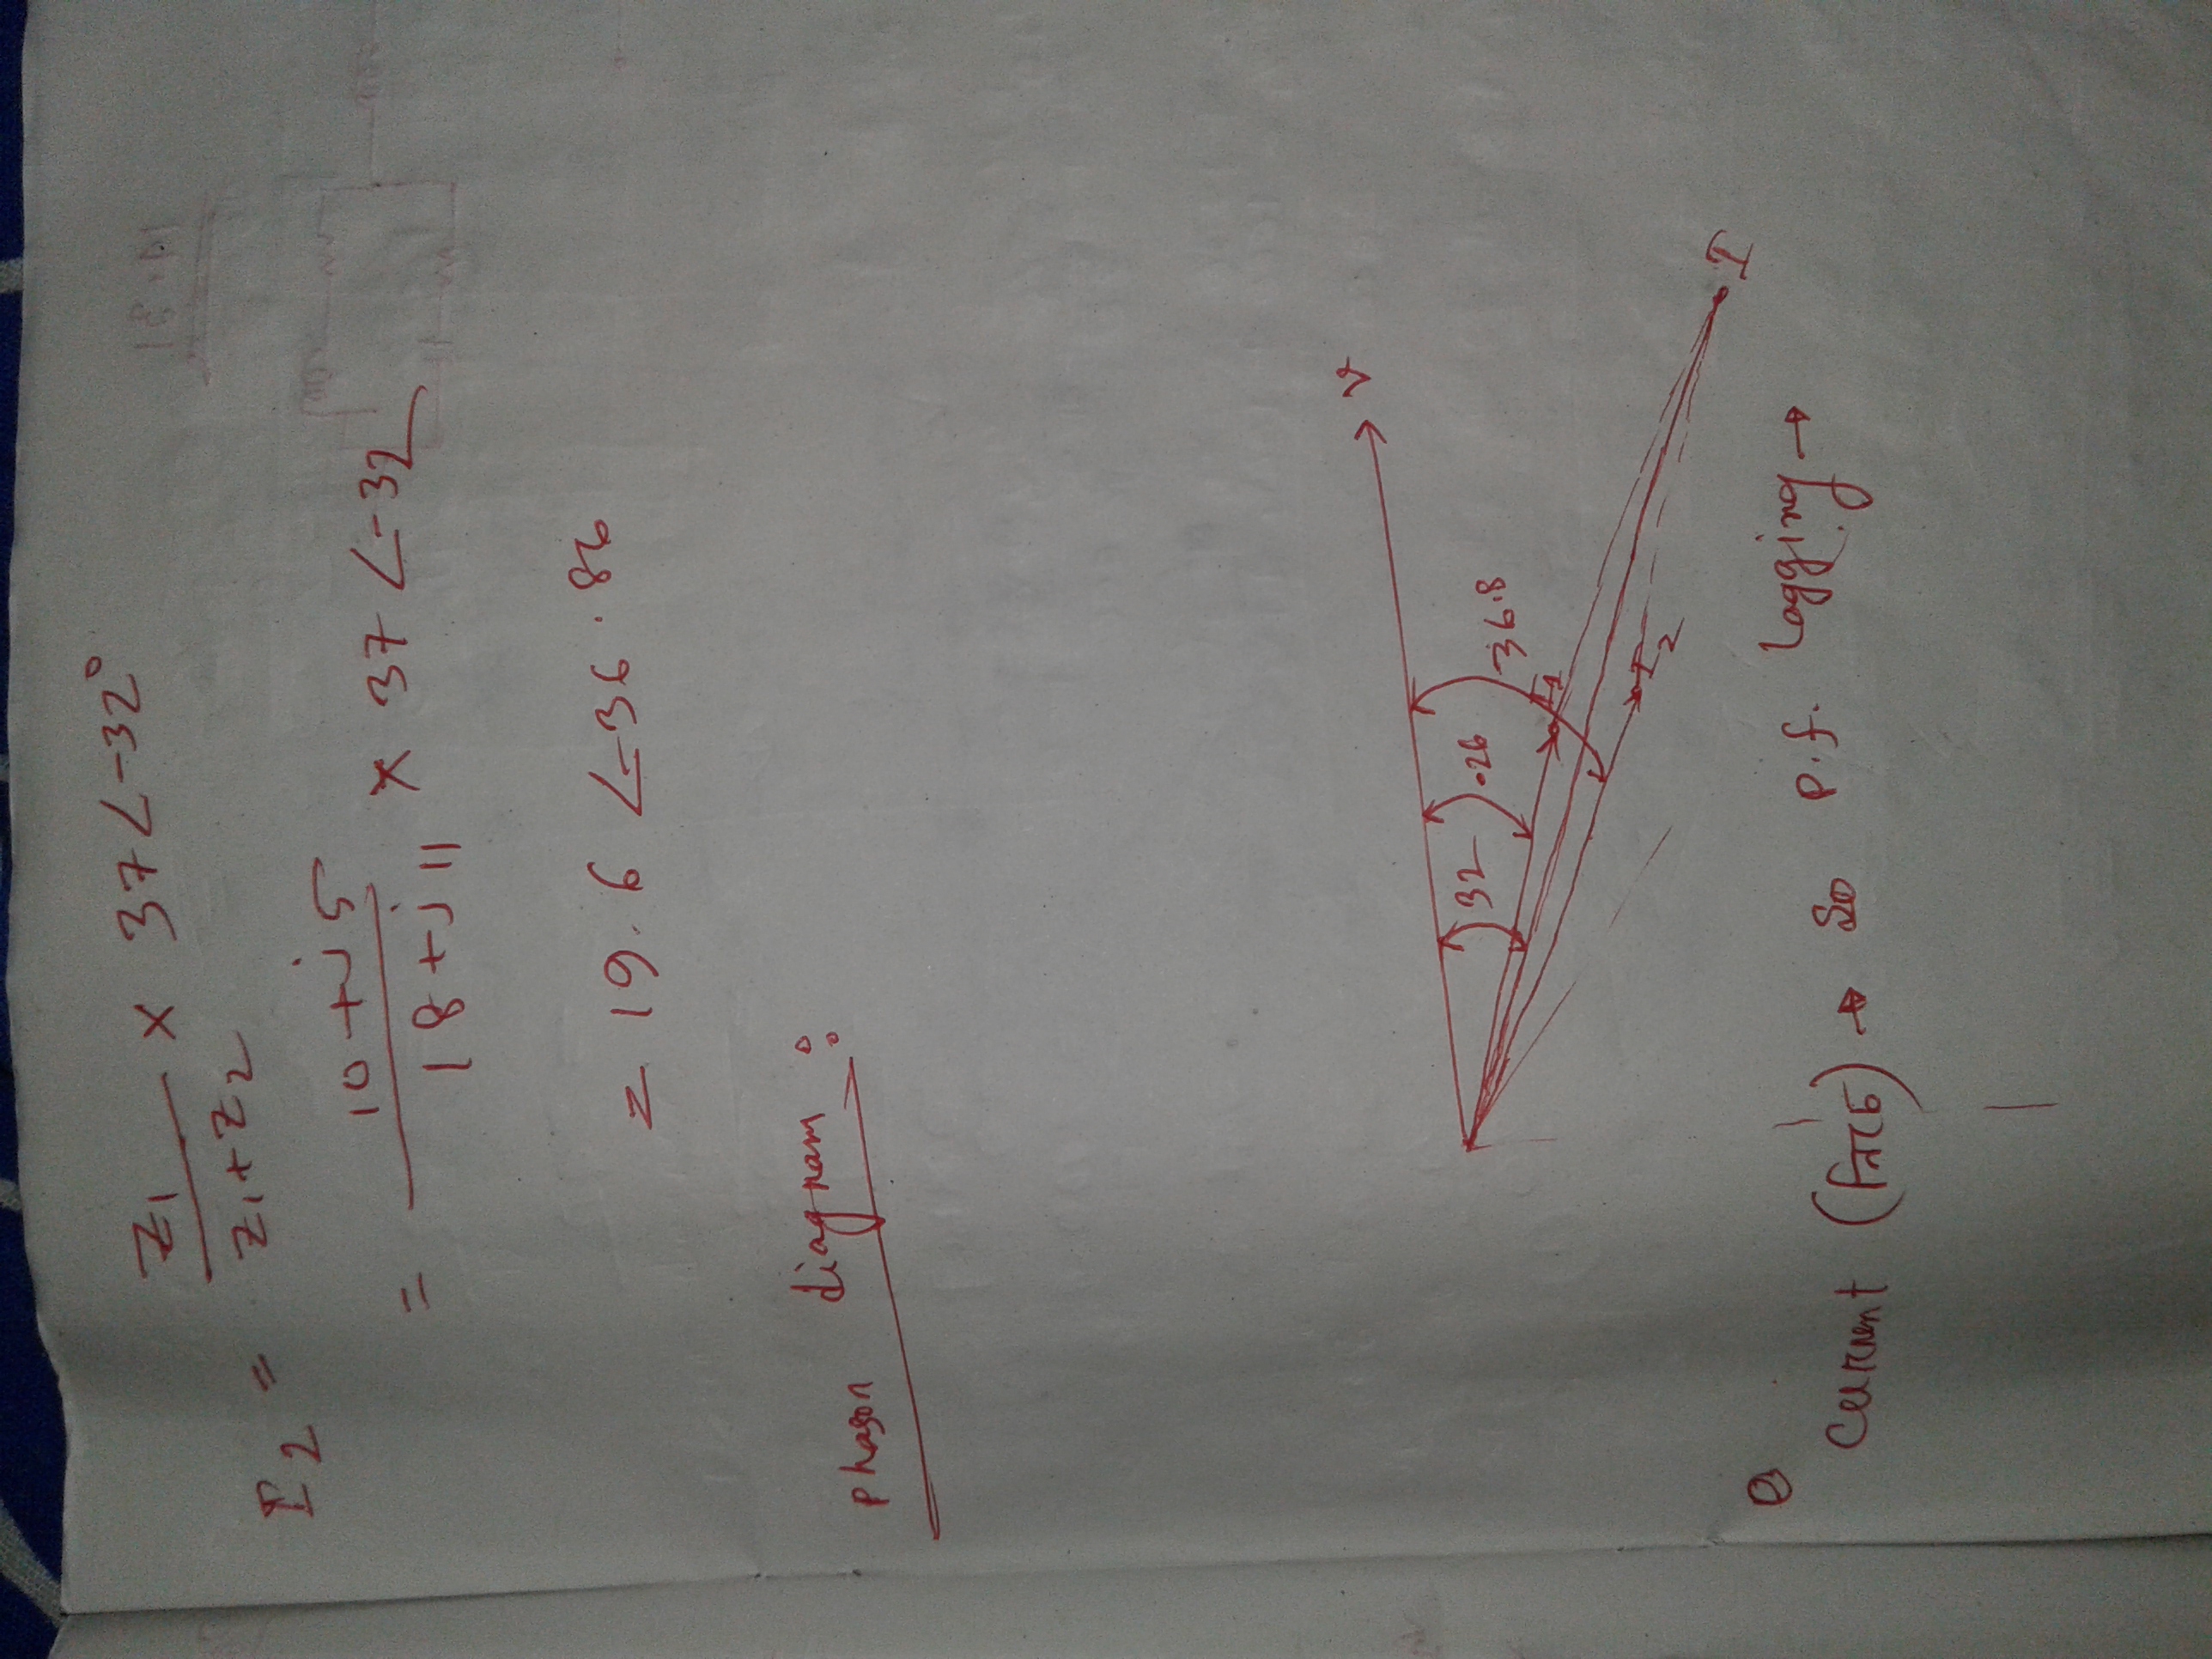 I2 = Z1 / Z1+Z2 × 37∠-32°
= 10+j5 / 18+j11 × 37∠-32
= 19.6 ∠-36.86
phasor diagram :
v
32
.26
36.8
I1
I2
I
Current (নিচে) → So p.f. lagging →